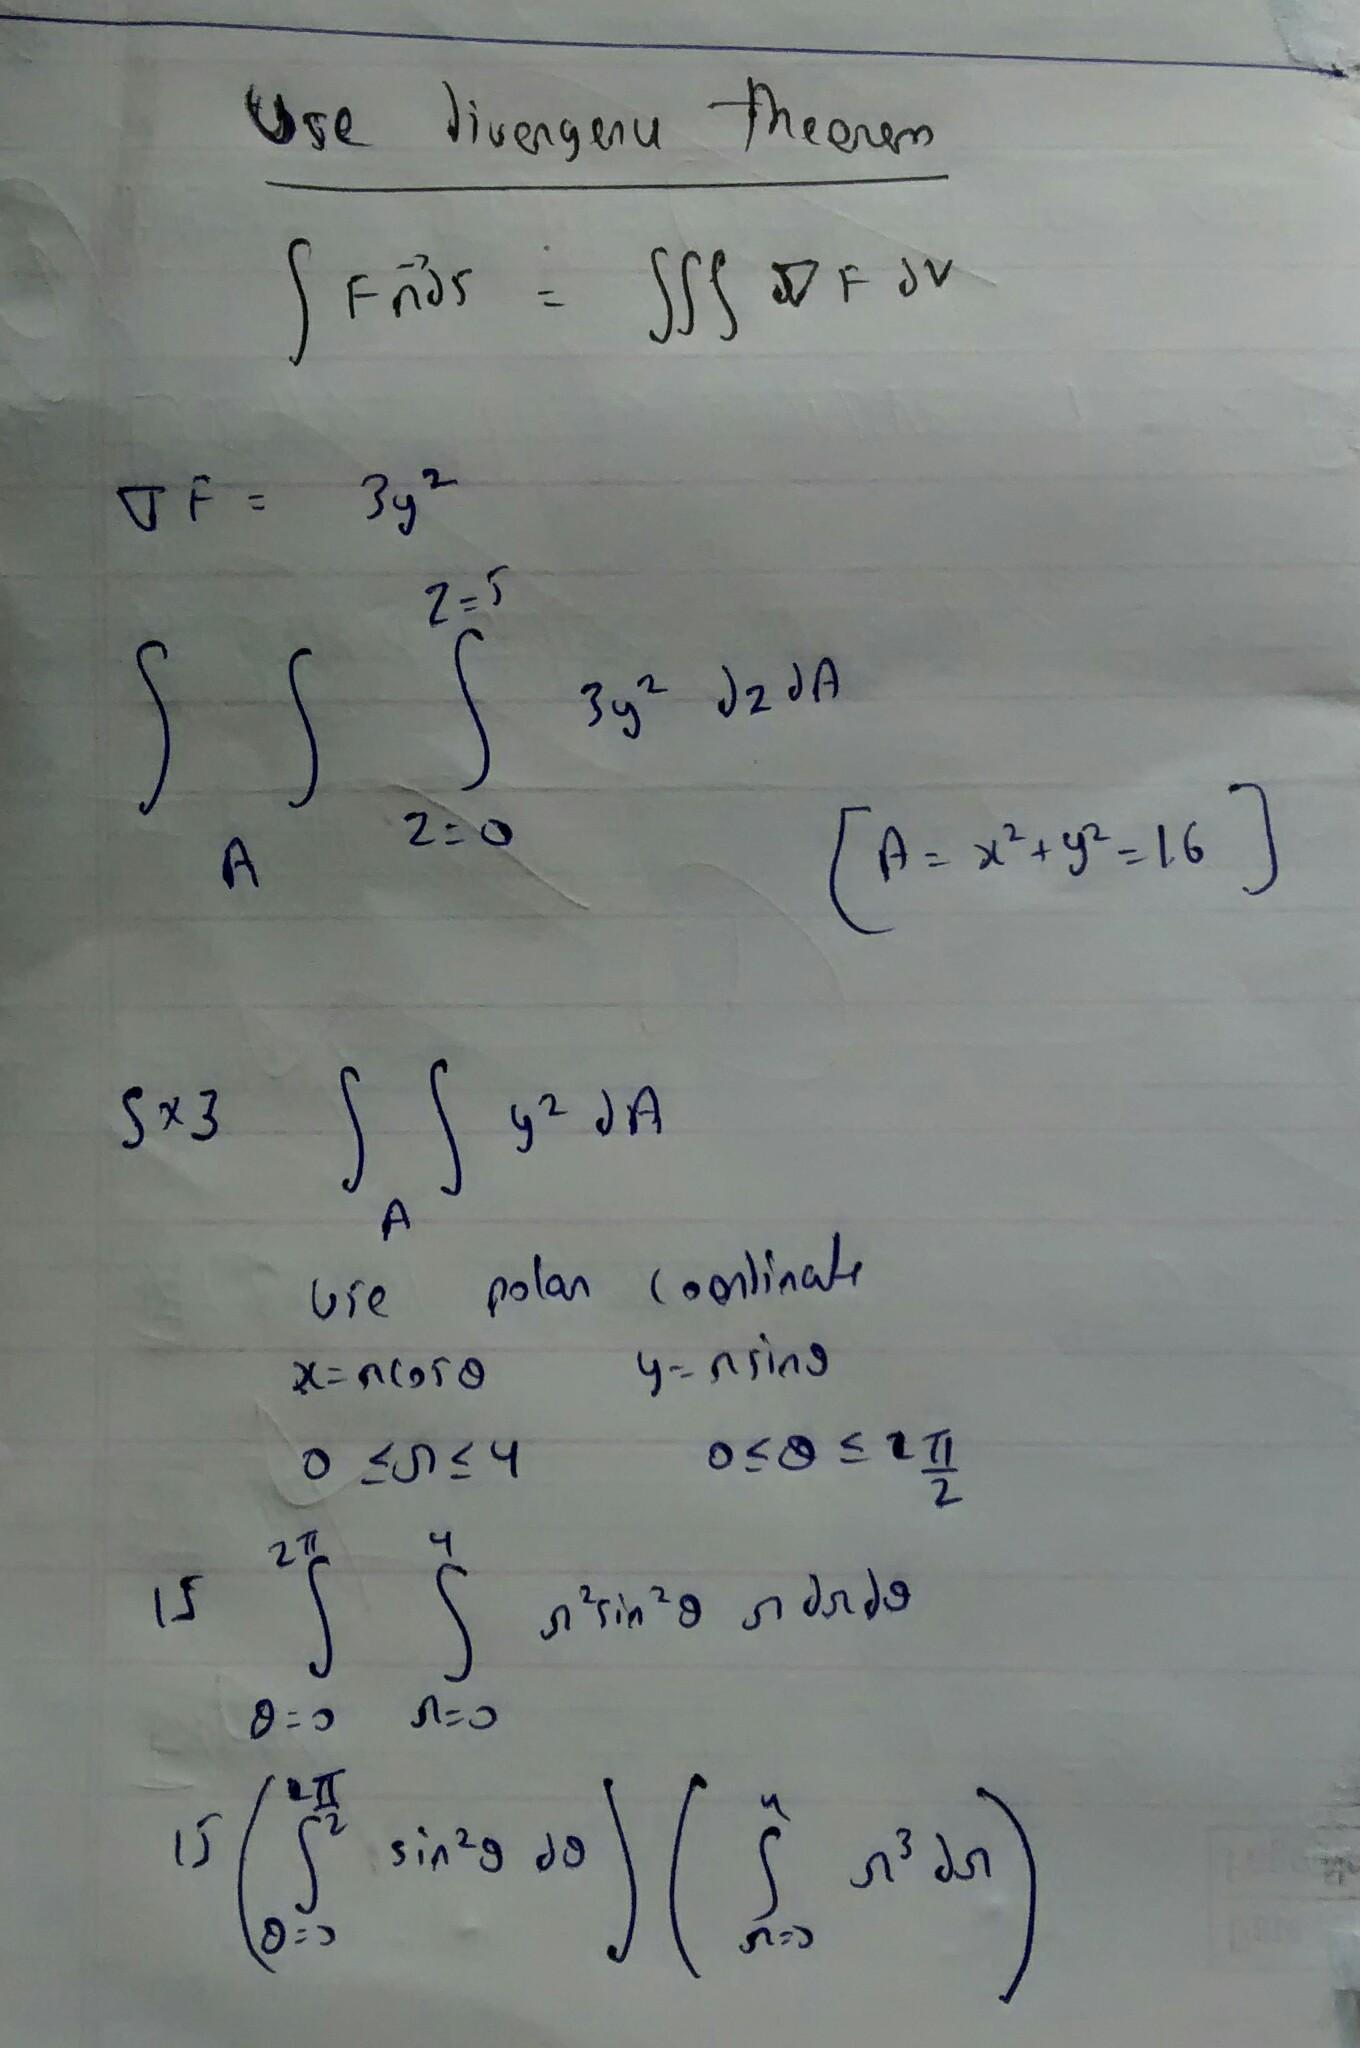 Use divergenu theorem
∫ F n⃗ ds = ∫∫∫ ∇ F dV
∇ F = 3y²
z=5
∫ ∫ ∫ 3y² dz dA
A z=0 [A = x²+y²=16]
5×3 ∫ ∫ y² dA
A
use polar coordinate
x=rcosθ y=rsinθ
0 ≤ r ≤ 4 0 ≤ θ ≤ π/2
15 ∫_{θ=0}^{2π} ∫_{r=0}^{4} r² sin²θ r dr dθ
15 ( ∫_{θ=0}^{π/2} sin²θ dθ ) ( ∫_{r=0}^{4} r³ dr )